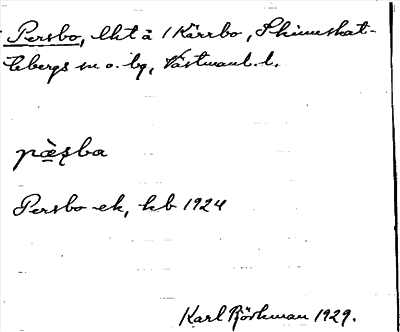 Persbo, lht å 1 Kärrbo, Skinnskat-
tebergs sn o. bg, Västmanl. l.
pæ̀ʂba
Persbo ek, kb 1924
Karl Björkman 1929.